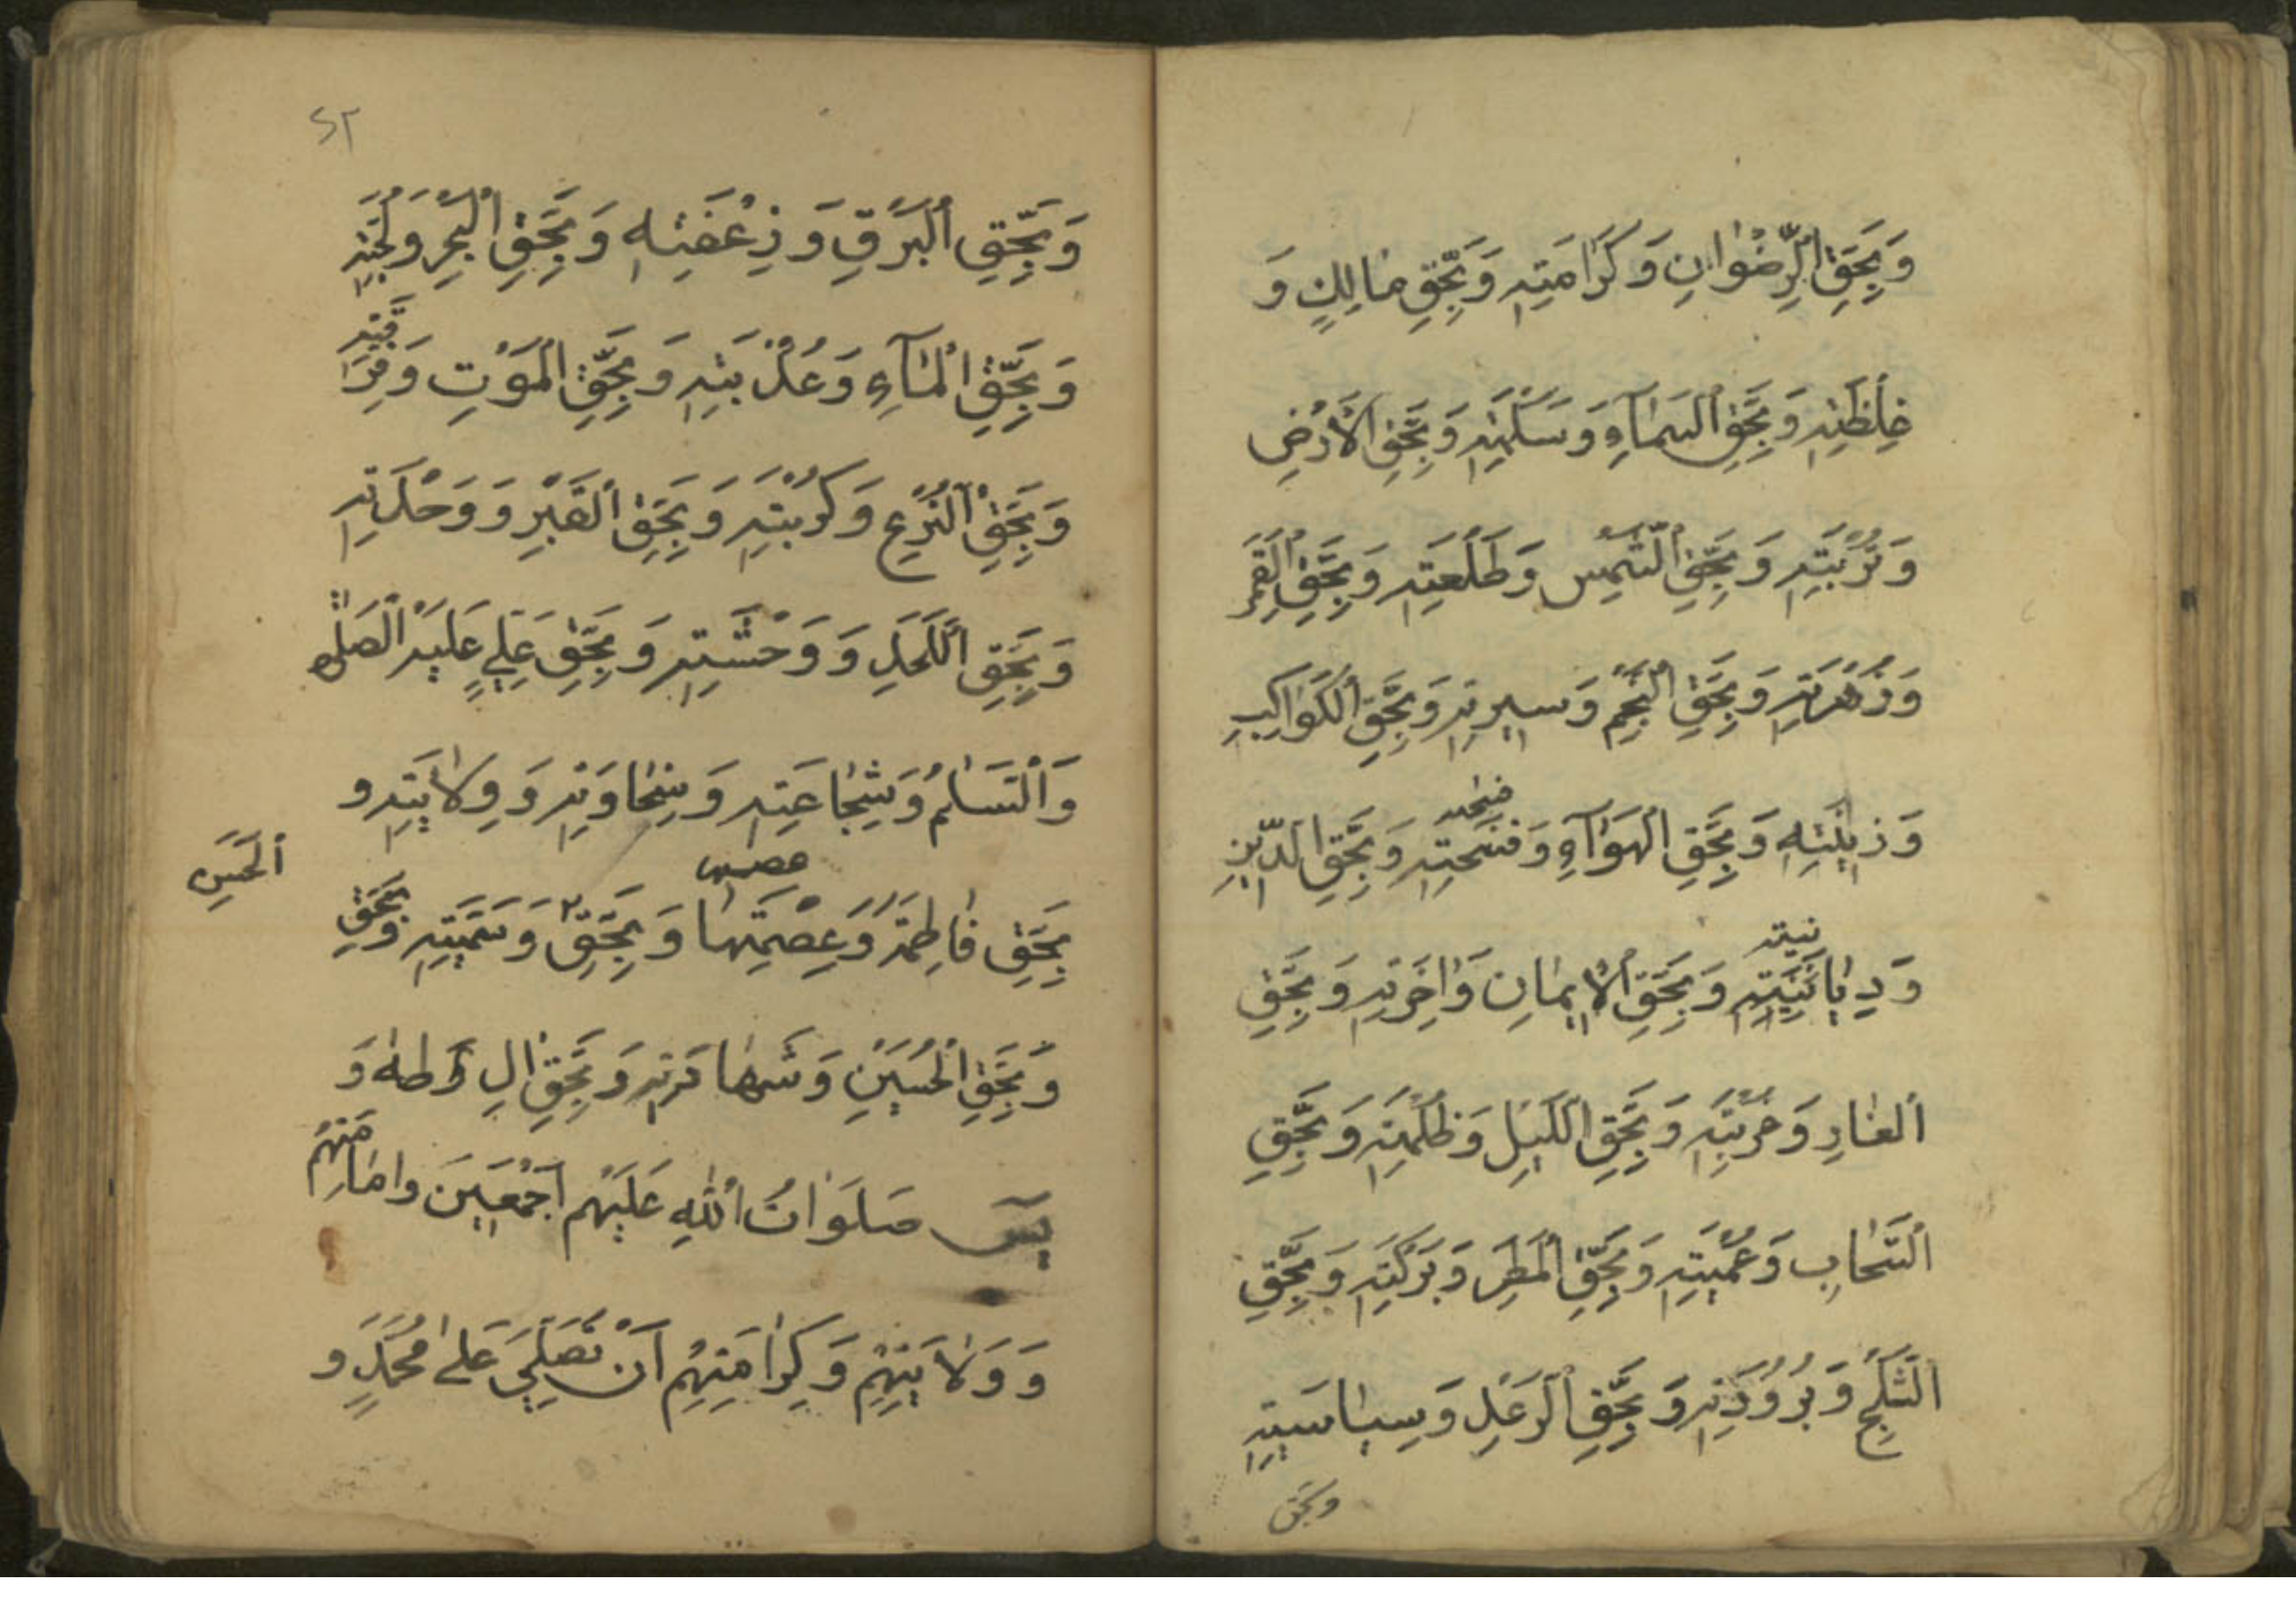 وَبِحَقِّ الرِّضْوَانِ وَكَرَامَتِهِ وَبِحَقِّ مَالِكٍ وَ
غِلْظَتِهِ وَبِحَقِّ السَّمَآءِ وَسَلَمَتِهِ وَبِحَقِّ الْأَرْضِ
وَتُرْبَتِهِ وَبِحَقِّ الشَّمْسِ وَطَلْعَتِهِ وَبِحَقِّ الْقَمَرِ
وَزُهْرَتِهِ وَبِحَقِّ النَّجْمِ وَسِيرَتِهِ وَبِحَقِّ الْكَوَاكِبِ
وَزِينَتِهِ وَبِحَقِّ الْهَوَآءِ وَفُسْحَتِهِ وَبِحَقِّ الدِّينِ
وَدِيَانَتِهِ وَبِحَقِّ الْإِيمَانِ وَاخِرَتِهِ وَبِحَقِّ
النَّارِ وَحُرْبَتِهِ وَبِحَقِّ اللَّيْلِ وَظُلْمَتِهِ وَبِحَقِّ
السَّحَابِ وَعُمِّيَتِهِ وَبِحَقِّ الْمَطَرِ وَبَرَكَتِهِ وَبِحَقِّ
الثَّلْجِ وَبُرُودَتِهِ وَبِحَقِّ الرَّعْدِ وَسِيَاسَتِهِ
وبحق
٥٢
وَبِحَقِّ الْبَرْقِ وَ وَبِحَقِّ الْبَحْرِ وَلُجَّتِهِ
وَبِحَقِّ الْمَآءِ وَعُذْبَتِهِ وَبِحَقِّ الْمَوْتِ وَفِرَاقَتِهِ
وَبِحَقِّ النَّزْعِ وَكُرْبَتِهِ وَبِحَقِّ الْقَبْرِ وَوَحْدَتِهِ
وَبِحَقِّ اللَّحَدِ وَوَحْشَتِهِ وَبِحَقِّ عَلِيٍّ عَلَيْهِ الصَّلٰوة
وَالسَّلَامُ وَشِجَاعَتِهِ وَسِخَاوَتِهِ وَوِلَايَتِهِ وَ
بِحَقِّ فَاطِمَةَ وَعِصْمَتِهَا وَبِحَقِّ وَسَمِّيَتِهِ وَبِحَقِّ
الْحَسَنِ
وَبِحَقِّ الْحُسَيْنِ وَشَهَادَتِهِ وَبِحَقِّ الِ وَطهٰ وَ
يٰسٓ صَلَوَاتُ اللّٰهِ عَلَيْهِمْ أَجْمَعِينَ وَامَامَتِهِمْ
وَوَلَايَتِهِمْ وَكِرَامَتِهِمْ اَنْ تُصَلِّيَ عَلٰى مُحَمَّدٍ وَ